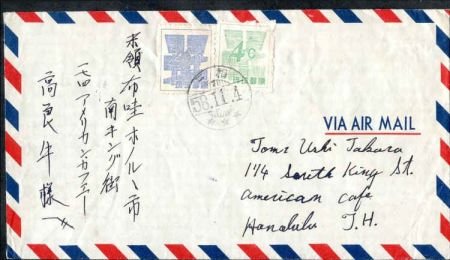 米領布哇ホノルル市
南キング街
一四アメリカンカフェー
高良牛様
4¢
琉球郵便
58.11.4
VIA AIR MAIL
Ushi Takara
114 South King St.
american cafe
Honolulu T.H.